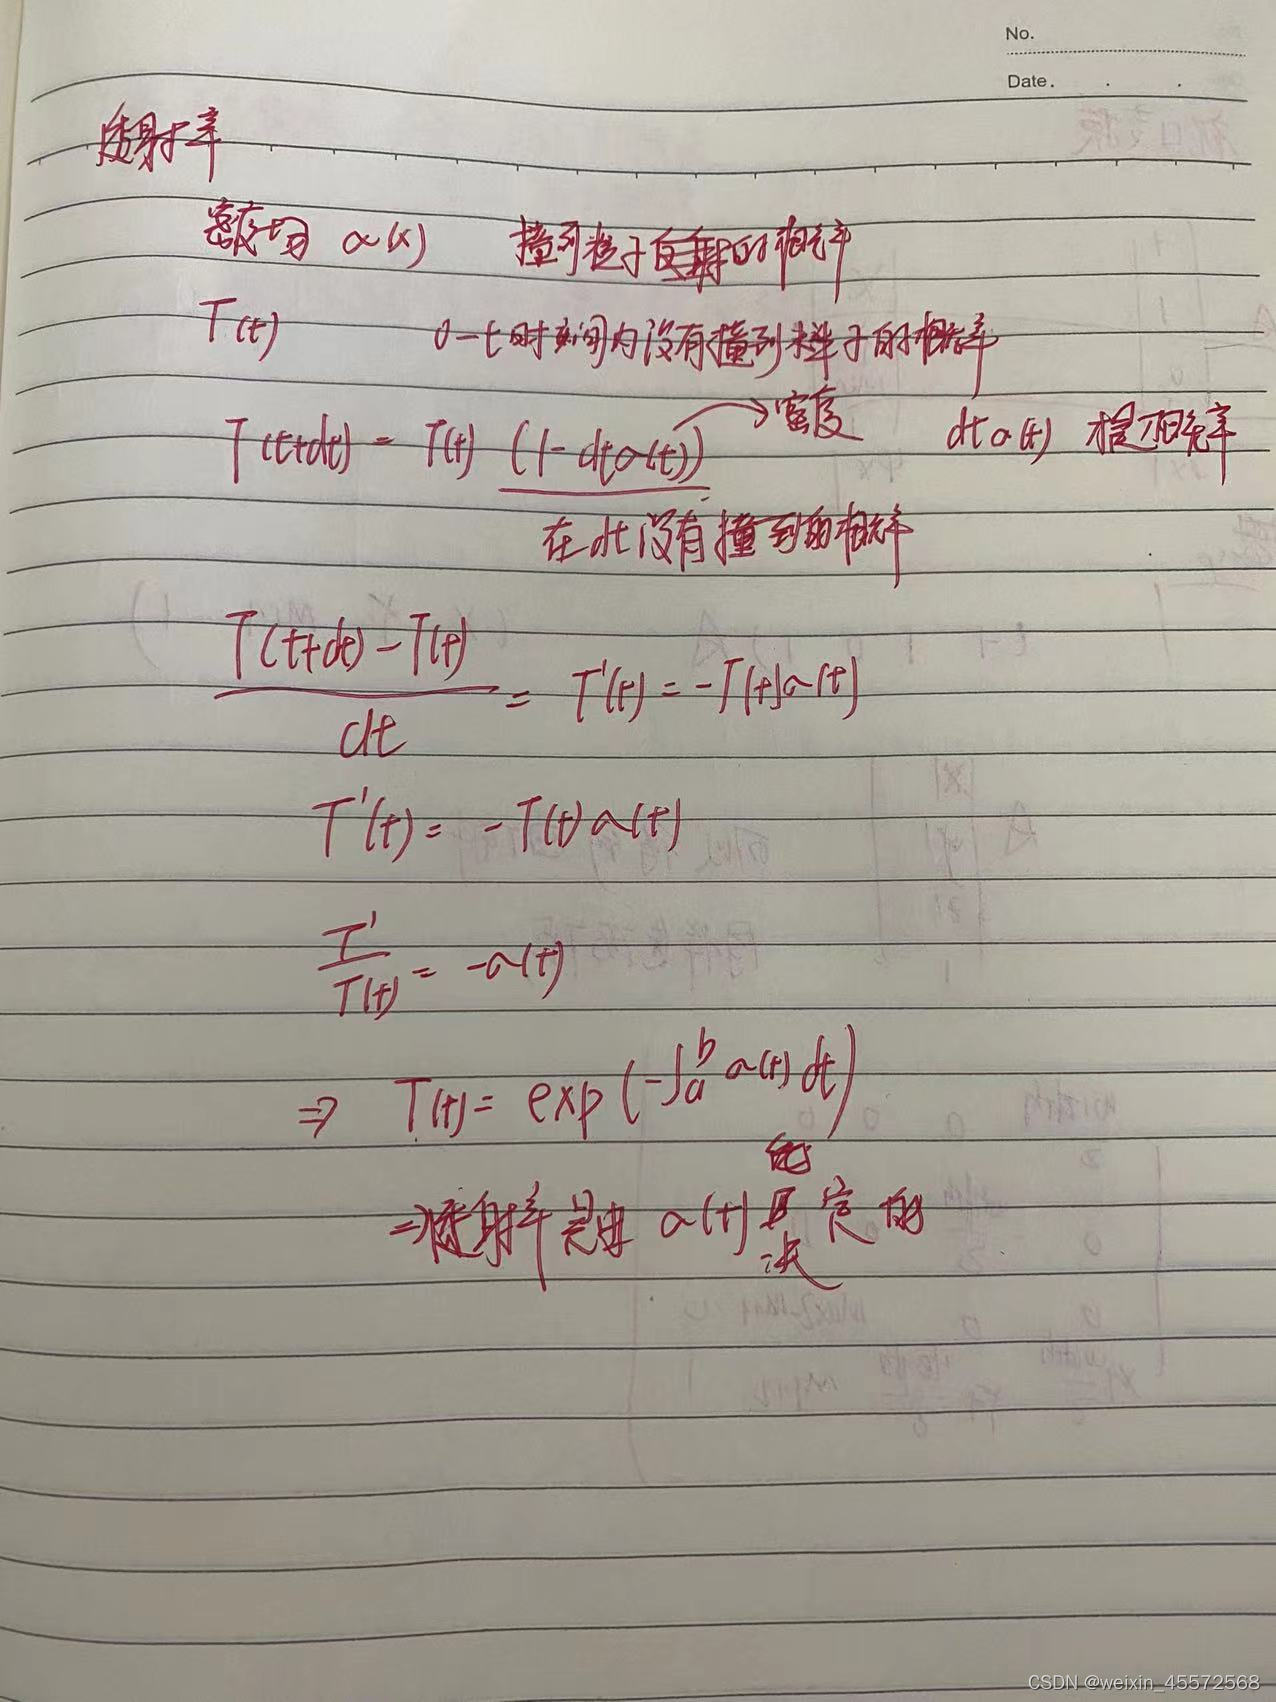 No.
Date.
透射率
密度场 σ(x) 撞到粒子的概率
T(t) 0-t时间内没有撞到粒子的概率
T(t+dt) = T(t) (1-dtσ(t)) → 密度 dtσ(t) 撞概率
在dt没有撞到的概率
T(t+dt)-T(t) / dt = T'(t) = -T(t)σ(t)
T'(t) = -T(t)σ(t)
T' / T(t) = -σ(t)
⇒ T(t) = exp(-∫_a^b σ(t) dt)
⇒透射率是由 σ(t) 决定的
CSDN @weixin_45572568